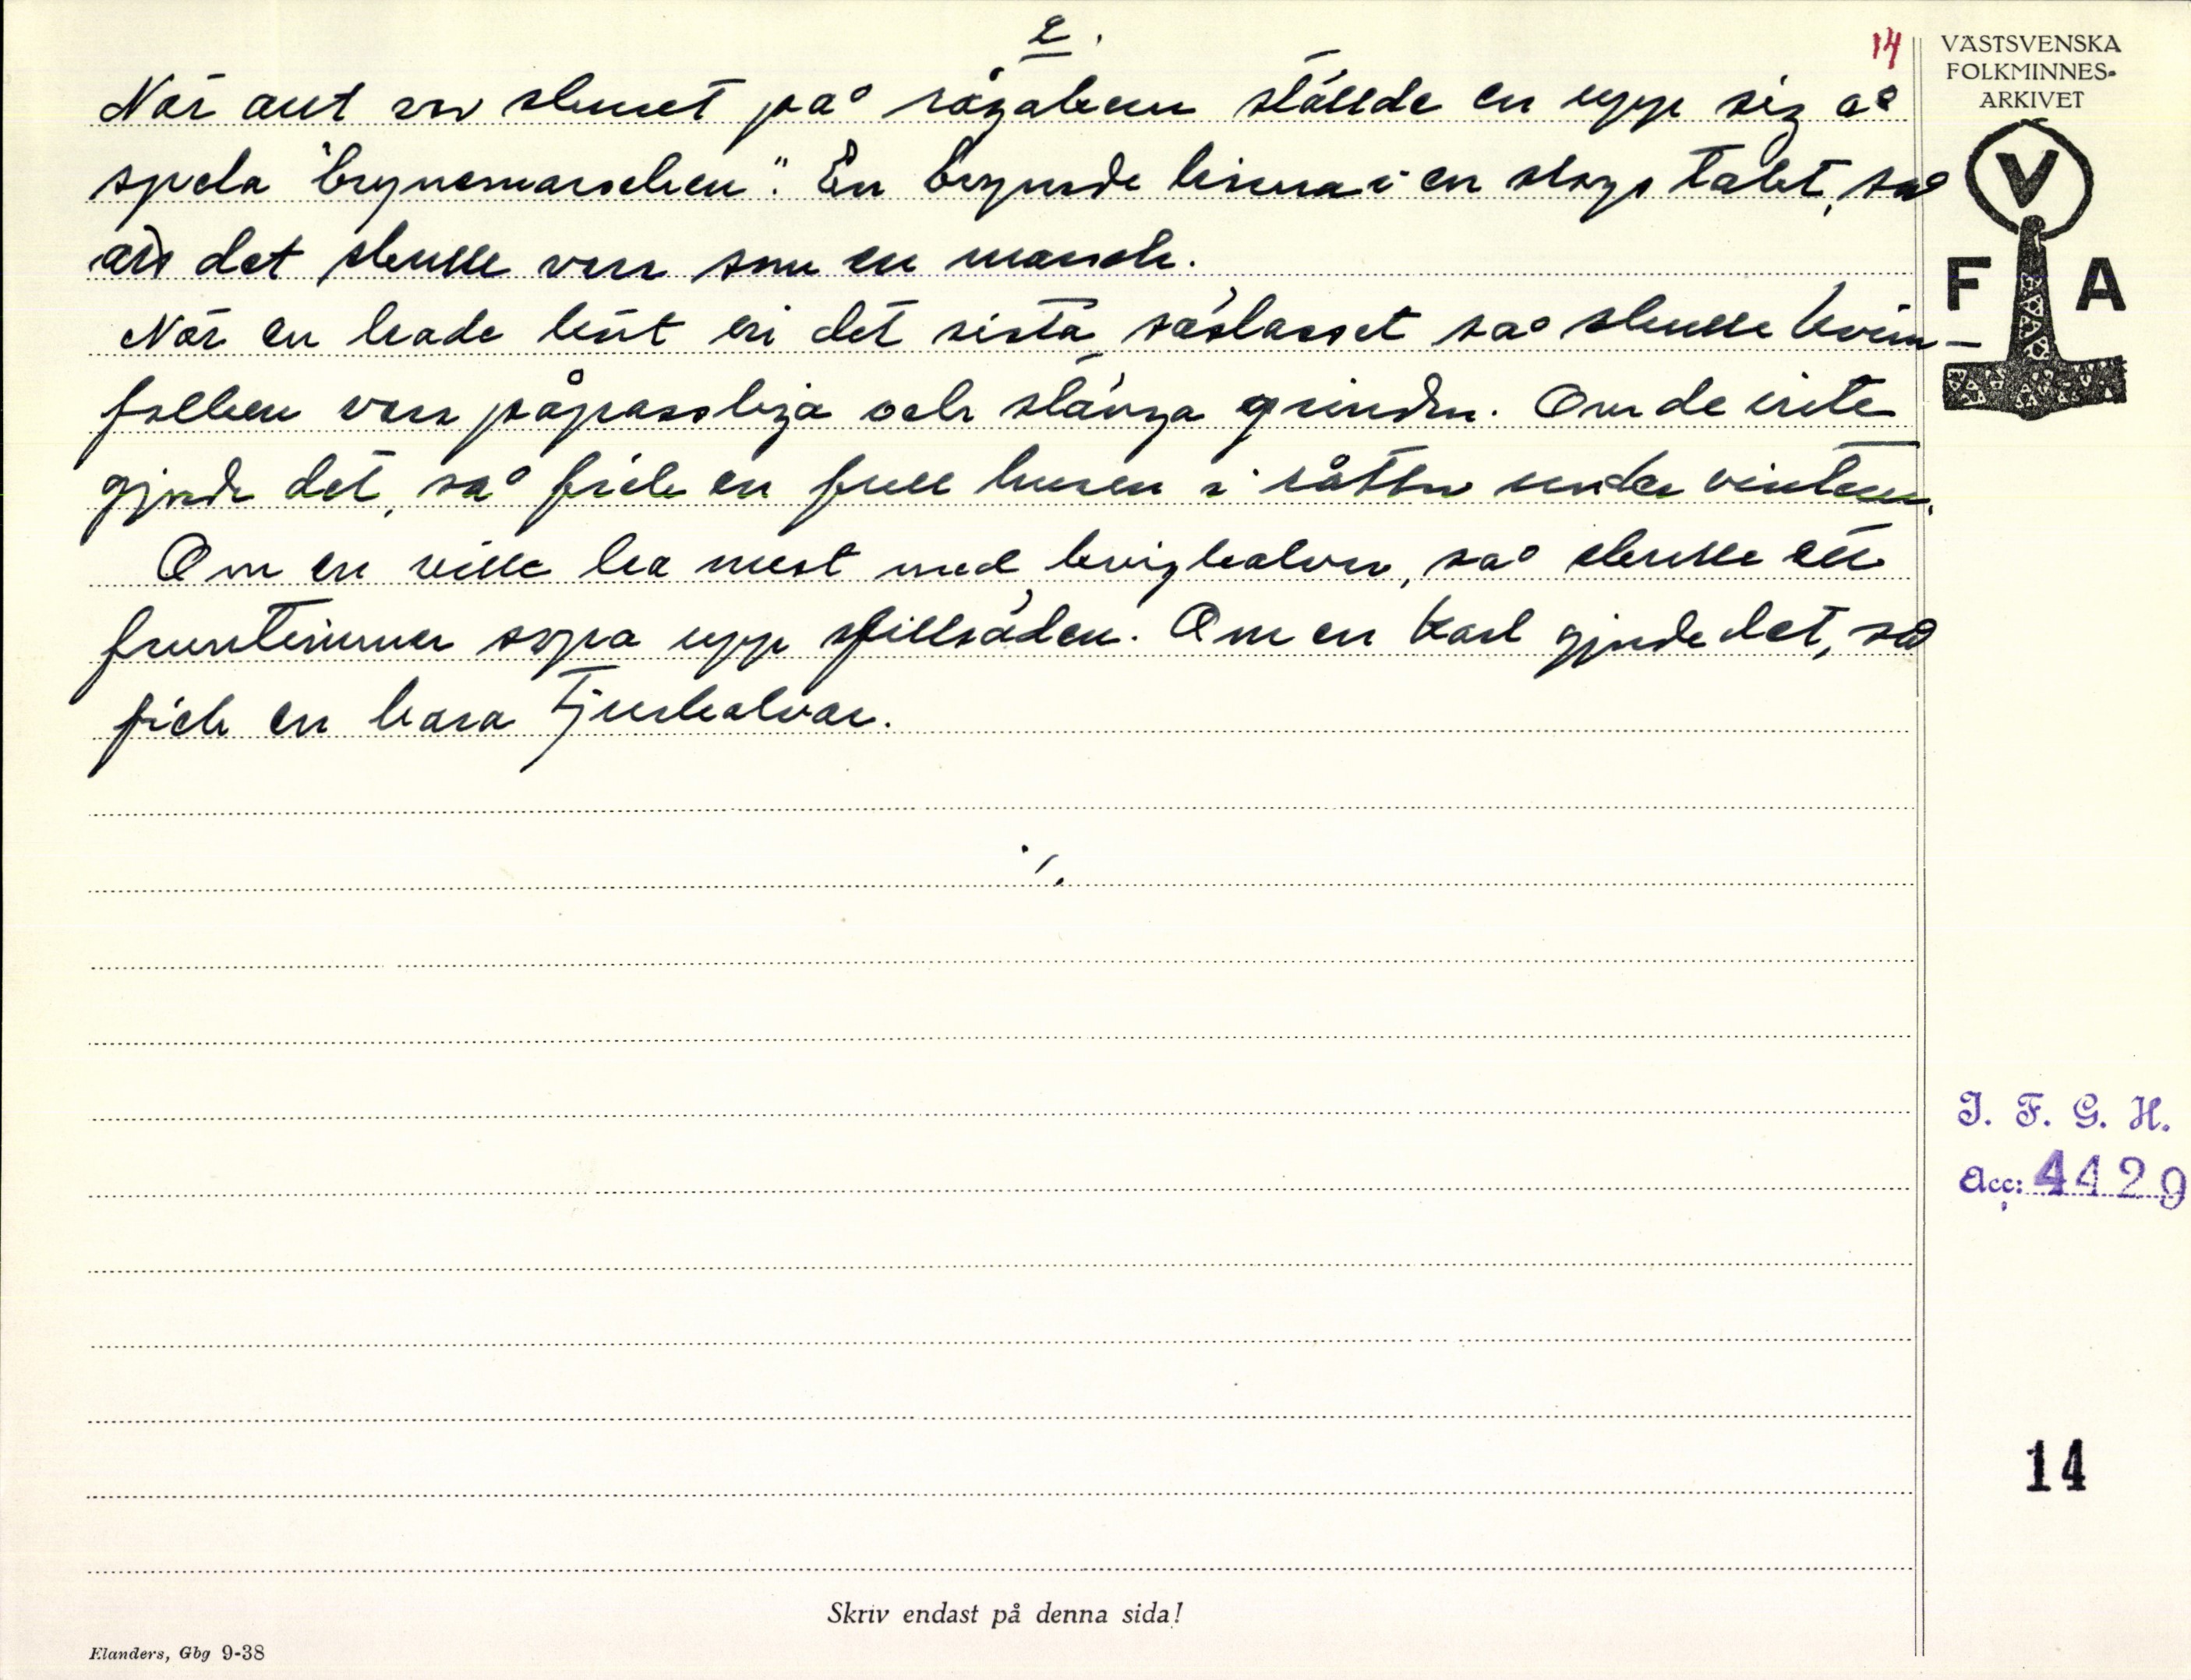 2.
14
VÄSTSVENSKA
FOLKMINNES-
ARKIVET
V
F A
När allt var skuret på rågaken ställde en upp sig å
spela "brynemarschen". En brynade liarna i en slags takt, så
att det skulle vara som en marsch.
När en hade kört in det sista säslasset så skulle kvin-
folken vara påpassliga och stänga grinden. Om de inte
gjorde det, så fick en full husen i råttor under vintern.
Om en ville ha mest med kvigkalvar, så skulle ett
fruntimmer sopa upp spillsäden. Om en karl gjorde det, så
fick en bara tjurkalvar.
./.
I. F. G. H.
Acc: 4429
14
Skriv endast på denna sida!
Elanders, Gbg 9-38